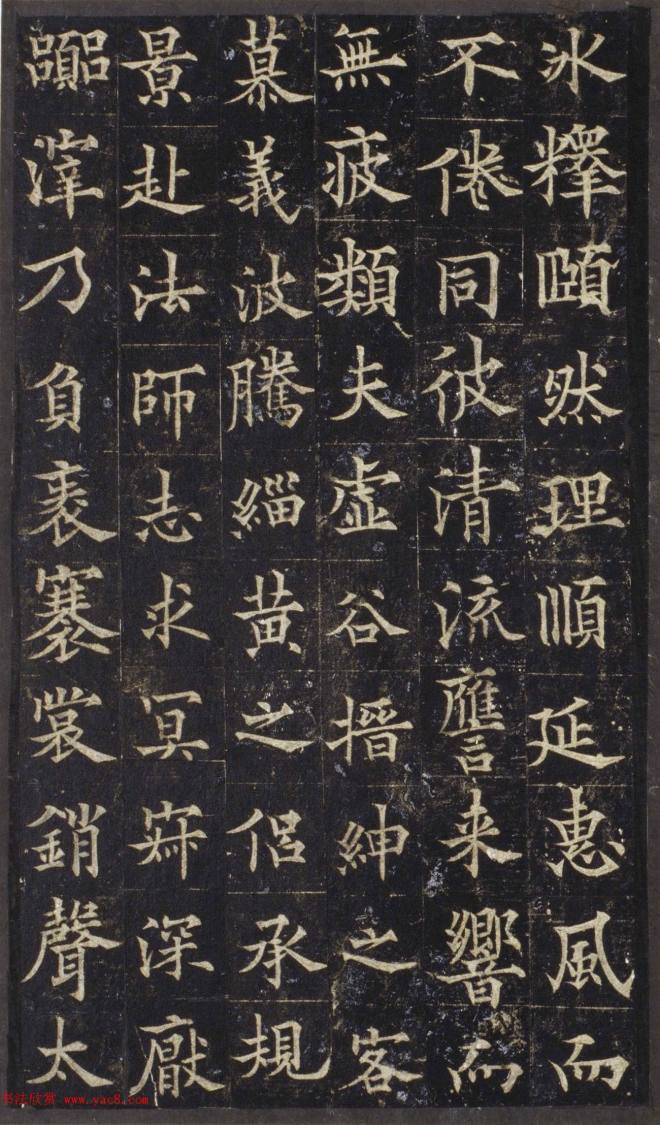 冰釋頤然理順延惠風而
不倦同彼清流譍来響而
無疲類夫虛谷搢紳之客
慕義波騰緇黄之侶承規
景赴法師志求冥寂深厭
嚻滓乃負袠褰裳銷聲太
书法欣赏 www.yac8.com